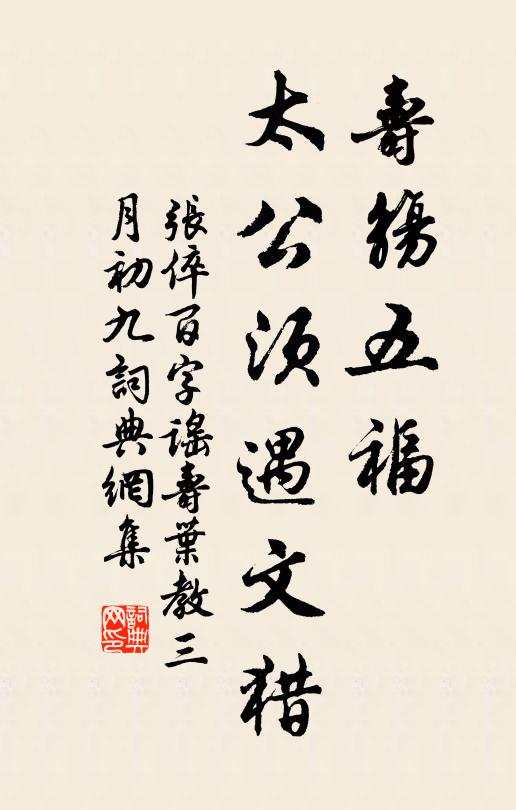 壽觴五福
太公須遇文猎
張倅百字謠壽葉教三
月初九詞典網集
詞典网印